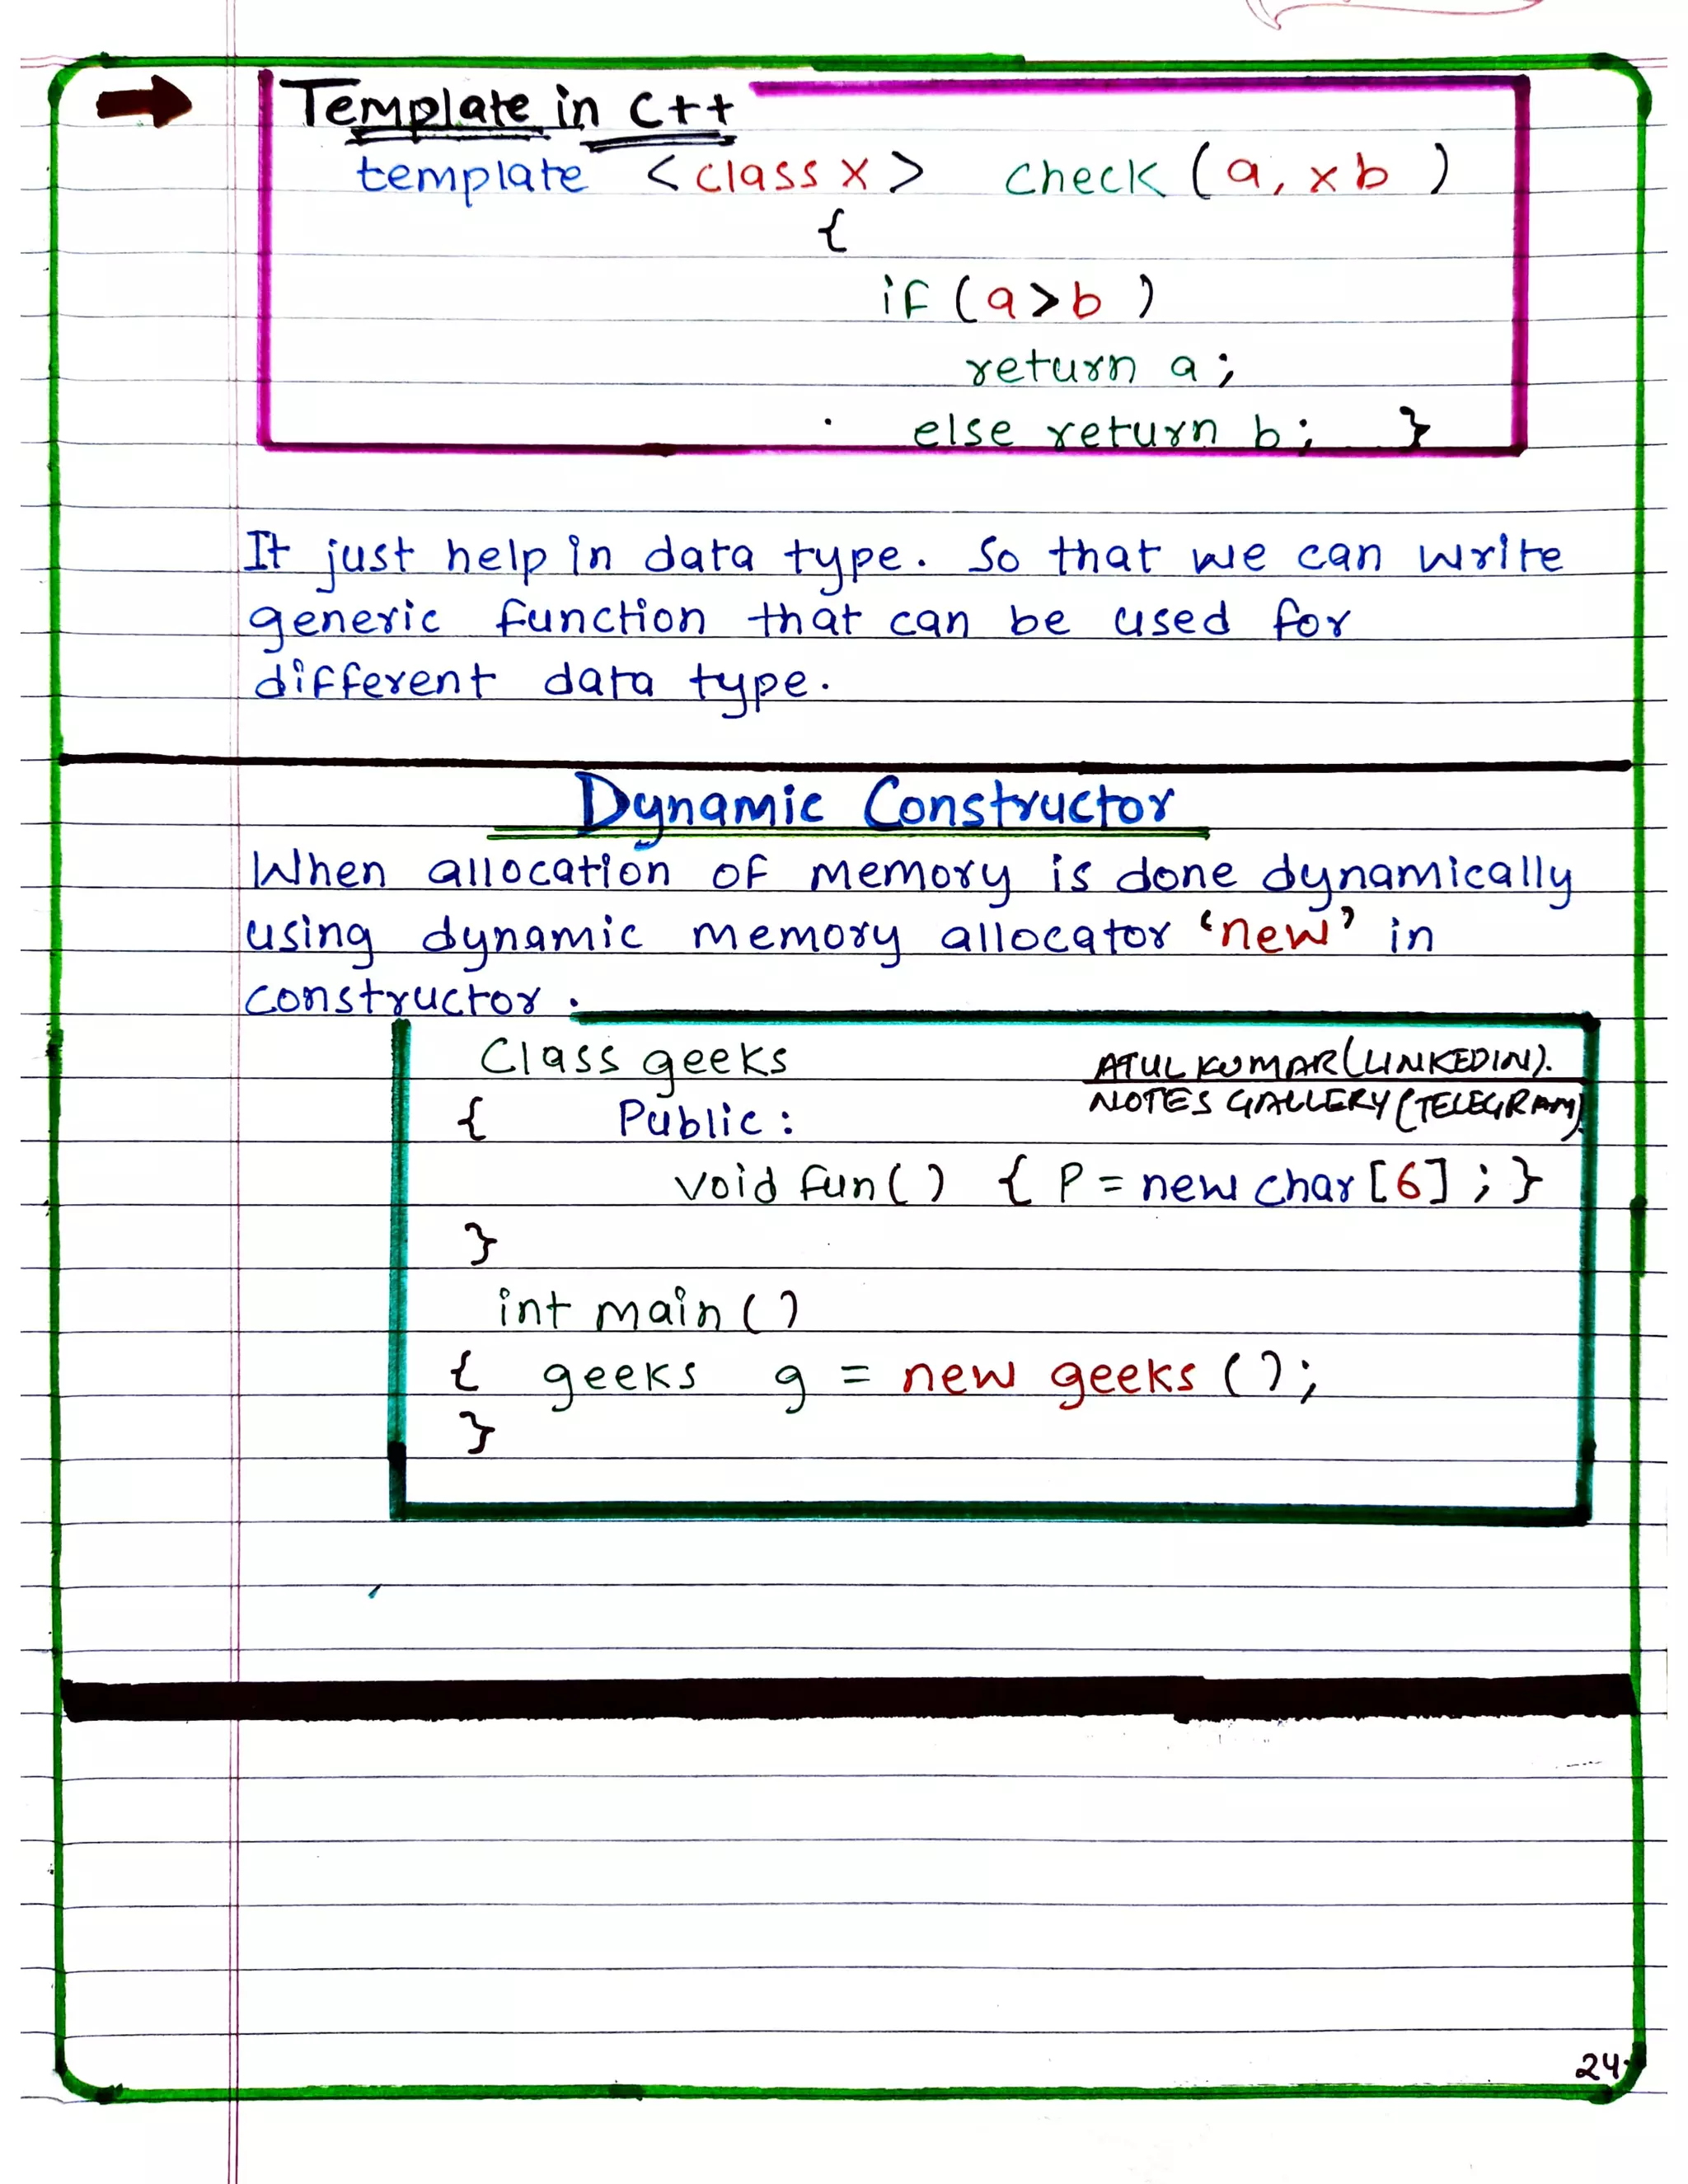 Template in C++
template <class x> check (a, x b )
{
if (a>b )
return a;
else return b; }
It just help in data type. So that we can write
generic function that can be used for
different data type.
Dynamic Constructor
When allocation of memory is done dynamically
using dynamic memory allocator 'new' in
constructor.
Class geeks
ATUL KUMAR (LINKEDIN).
{ Public :
NOTES GALLERY (TELEGRAM)
void fun() { P = new char [6] ; }
}
int main ()
{ geeks g = new geeks ();
}
24